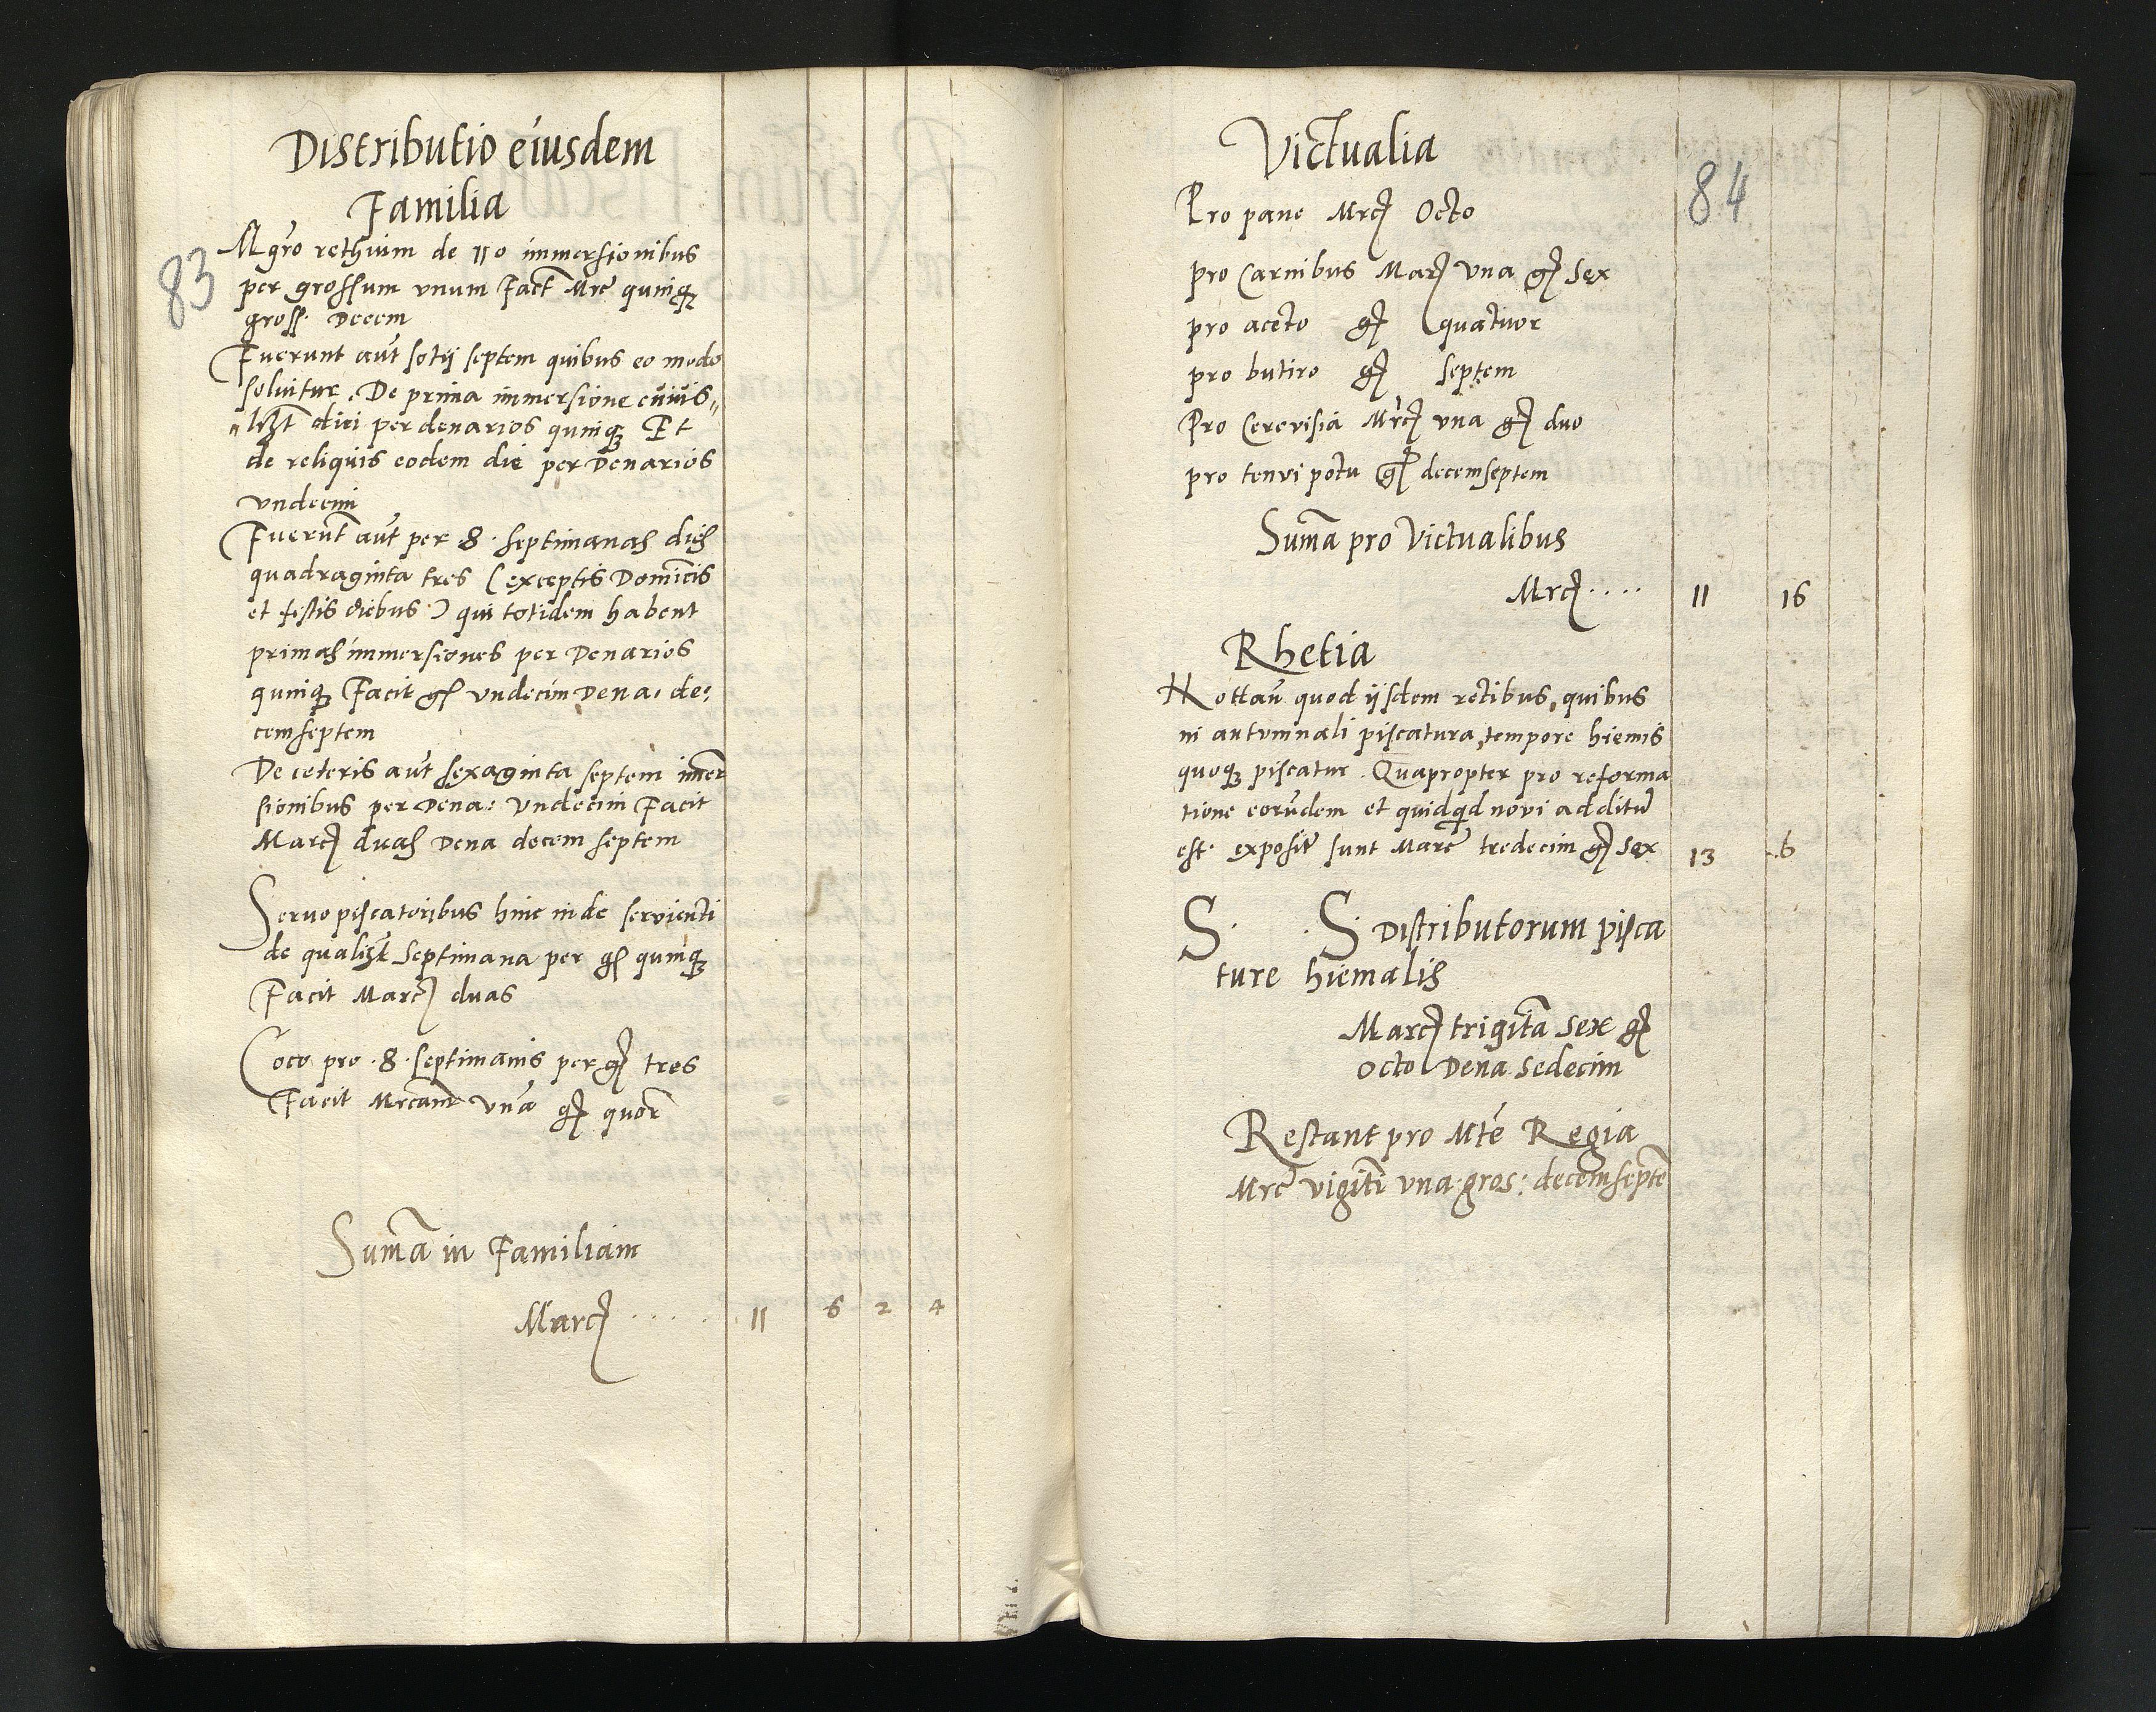 Distributio eiusdem
Familia
83
Mgro rethium de 110 immersionibus
per grossum unum Fact Mrc quinq
gross. Decem
Fuerunt aut sotij septem quibus eo modo
solvitur. De prima immersione cuius„
„lzt diei per denarios quinq Et
de reliquis eodem die per Denarios
undecim
Fuerut aut per 8. septimanas dies
quadraginta tres (exceptis Dominicis
et festis diebus) qui totidem habent
primas immersiones per Denarios
quinq Facit gs undecim Dena. de:
cemseptem
De ceteris aut sexaginta septem imer
sionibus per Dena: undecim Facit
Marc duas Dena decem septem
Servo piscatoribus hinc inde servienti
de qualizt septimana per gs quinq
Facit Marc duas
Coco pro .8. septimanis per g tres
Facit Mrcam una g quor
Suma in Familiam
Marc ..... 11 6 2 4
Victualia
84
Pro pane Mrc Octo
pro Carnibus Marc una g Sex
pro aceto g quatuor
pro butiro g septem
Pro Cerevisia Mrc una g duo
pro tenvi potu g decemseptem
Suma pro Victualibus
Mrc .... 11 16
Rhetia
Nottan quod ijsdem retibus, quibus
in autumnali piscatura, tempore hiemis
quoq piscatur. Quapropter pro reforma
tione eorudem et quidqd novi additu
est. exposit sunt Marc tredecim g Sex 13 .6
S. .S Distributorum pisca
ture hiemalis
Marc trigita sex g
octo Dena sedecim
Restant pro Mte Regia
Mrc vigiti una gros: decemsepte